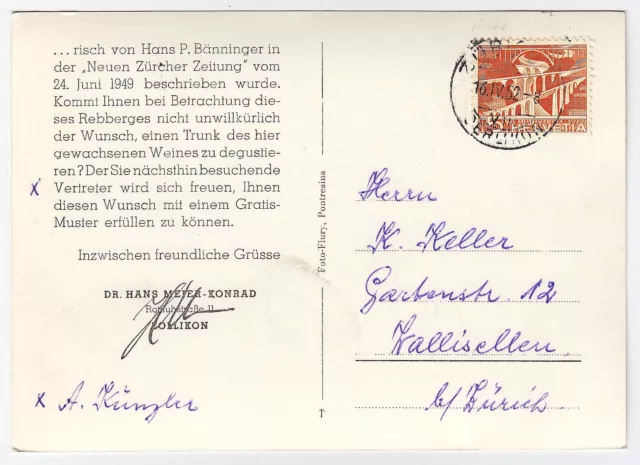 ... risch von Hans P. Bänninger in
der „Neuen Zürcher Zeitung" vom
24. Juni 1949 beschrieben wurde.
Kommt Ihnen bei Betrachtung die-
ses Rebberges nicht unwillkürlich
der Wunsch, einen Trunk des hier
gewachsenen Weines zu degustie-
ren? Der Sie nächsthin besuchende
x Vertreter wird sich freuen, Ihnen
diesen Wunsch mit einem Gratis-
Muster erfüllen zu können.
Inzwischen freundliche Grüsse
DR. HANS MEIER-KONRAD
OERLIKON
x A. Künzler
Foto-Flury, Pontresina
16.IV.52-8
OERLIKON
HELVETIA
Herrn
K. Keller
Gartenstr. 12
Wallisellen
b/ Zürich